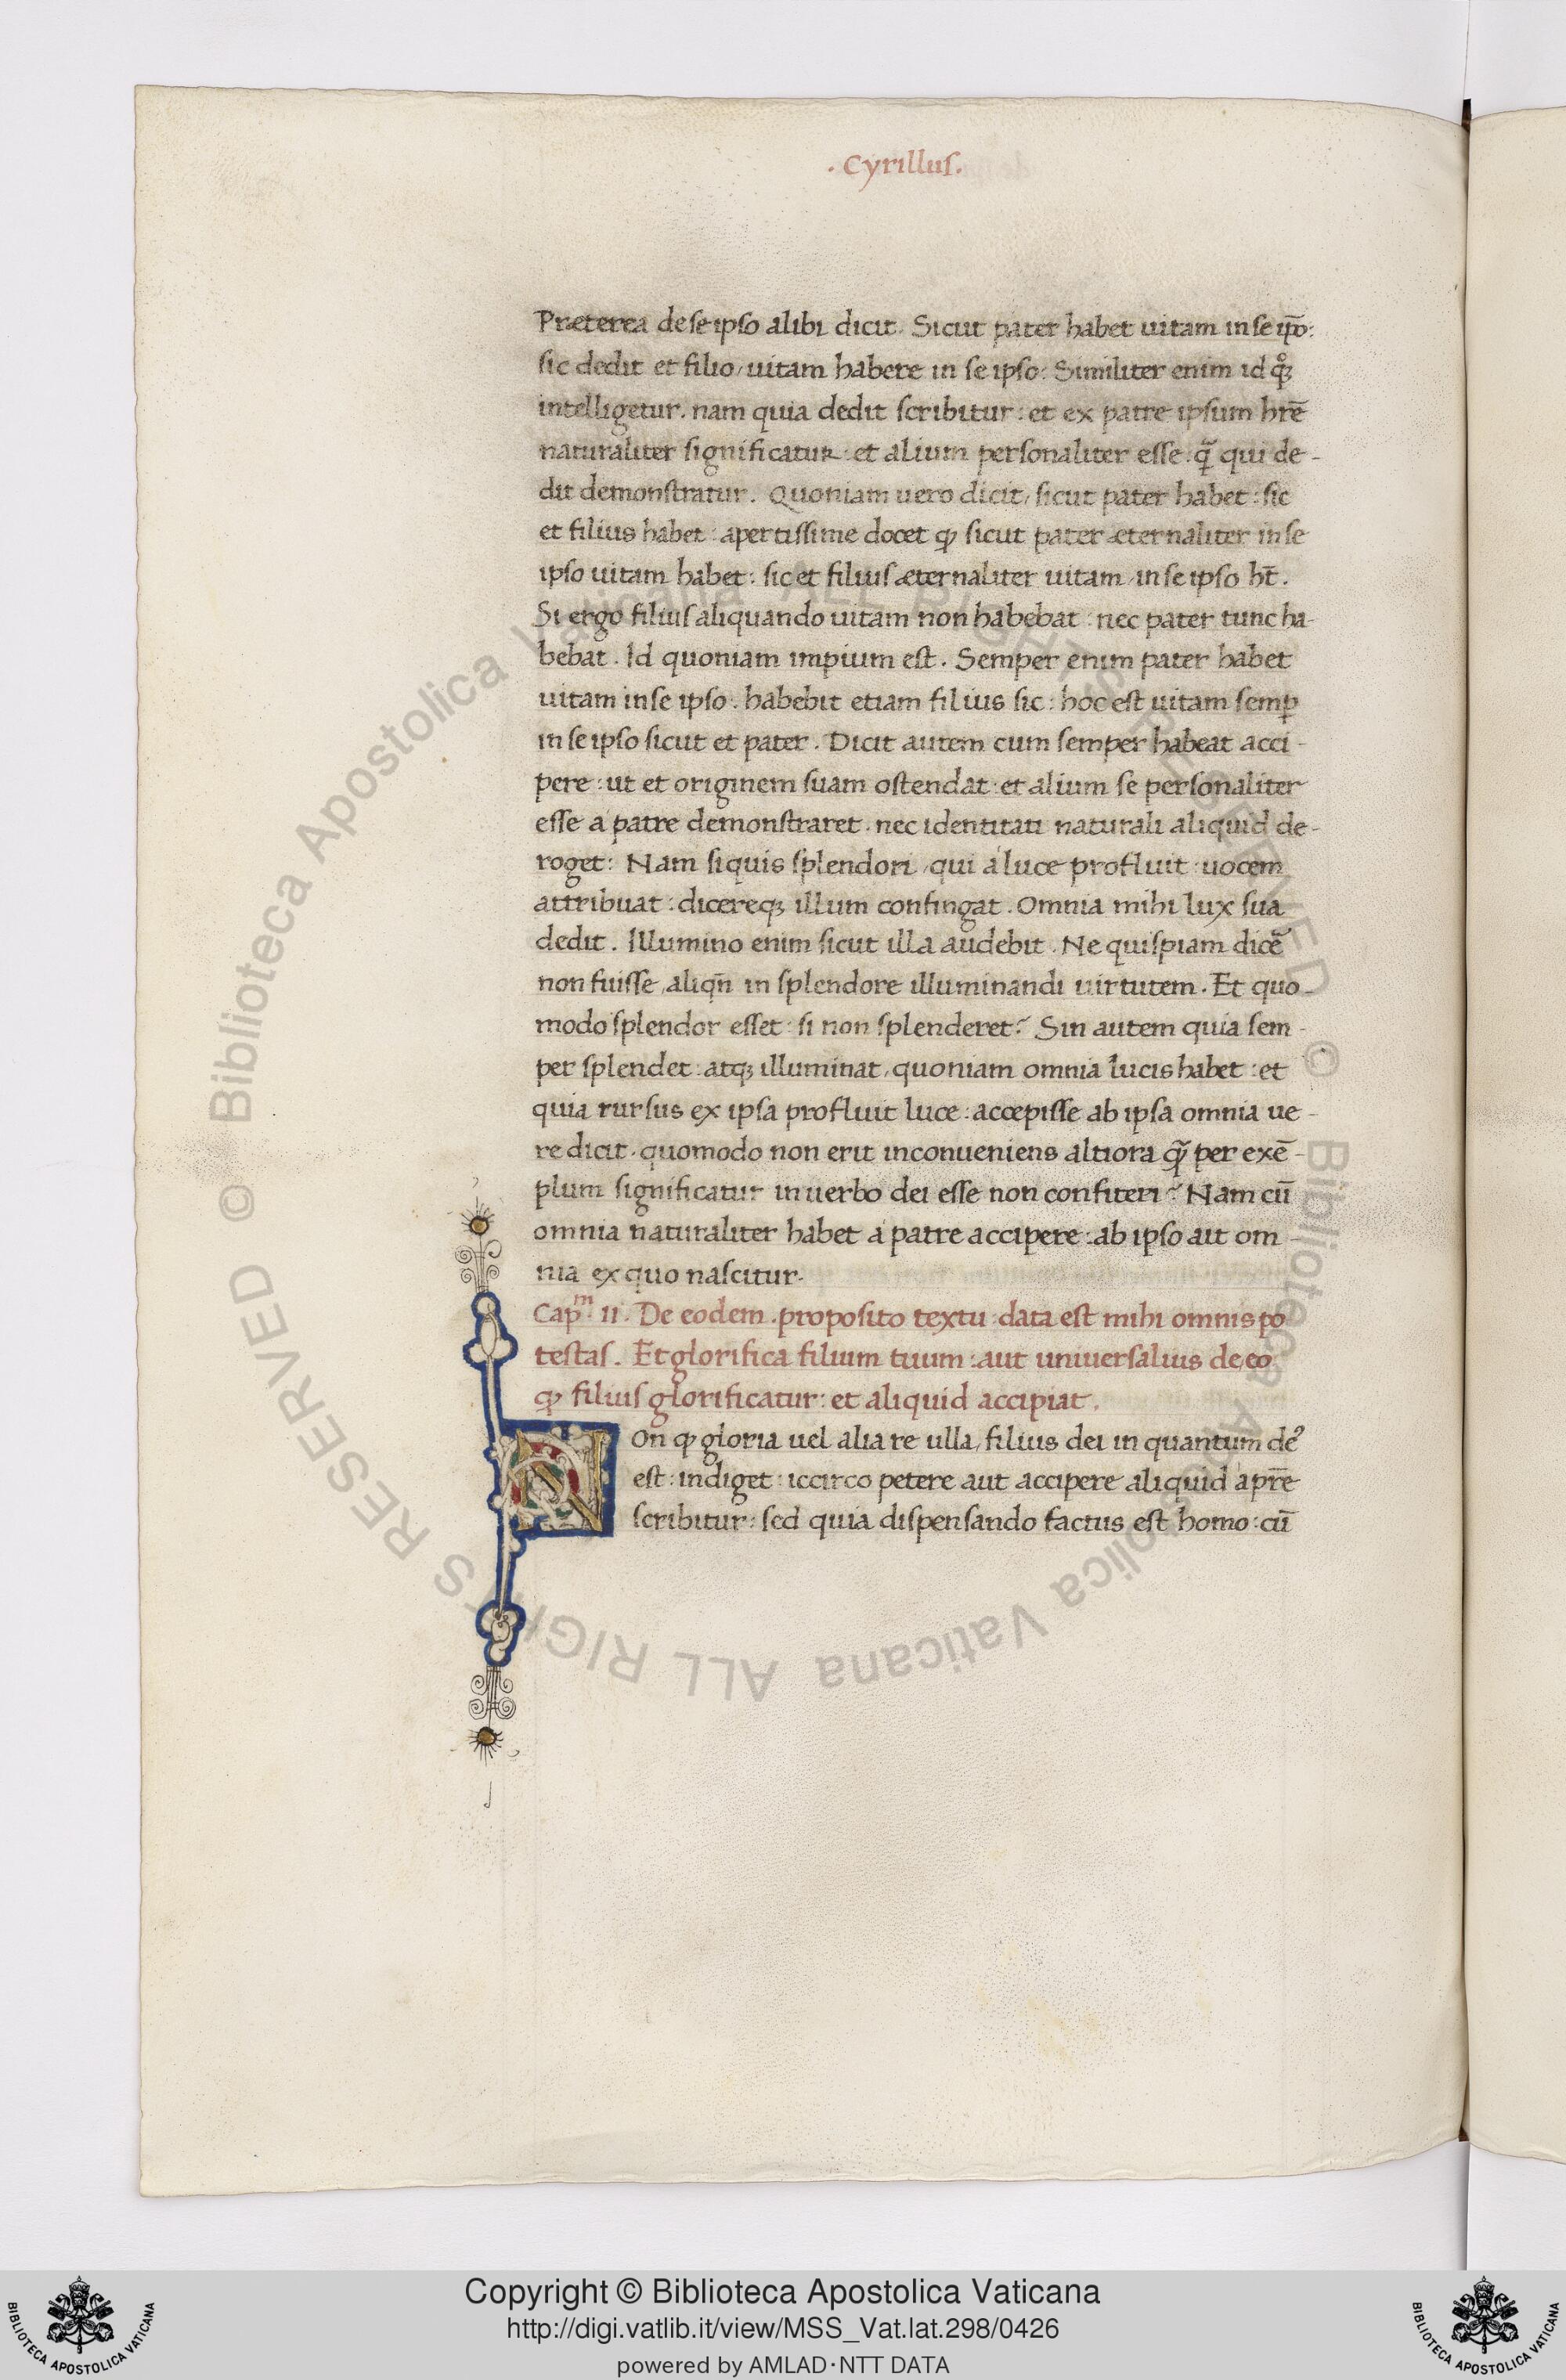 . Cyrillus.
Præterea de se ipso alibi dicit. Sicut pater habet uitam in se ip̄o:
sic dedit et filio, uitam habere in se ipso: Similiter enim id qͦꝫ
intelligetur. nam quia dedit scribitur: et ex patre ipsum hr̄e
naturaliter significatur: et alium personaliter esse: qͣ̃ qui de-
dit demonstratur. Quoniam uero dicit, sicut pater habet: sic
et filius habet: apertissime docet ꝙ sicut pater æternaliter in se
ipso uitam habet: sic et filius æternaliter uitam in se ipso ht̄.
Si ergo filius aliquando uitam non habebat: nec pater tunc ha-
bebat. Id quoniam impium est. Semper enim pater habet
uitam in se ipso. habebit etiam filius sic: hoc est uitam semꝑ
in se ipso sicut et pater. Dicit autem cum semper habeat acci-
pere: ut et originem suam ostendat: et alium se personaliter
esse a patre demonstraret. nec identitati naturali aliquid de-
roget: Nam siquis splendori, qui a luce profluit uocem
attribuat: dicereqꝫ illum confingat. Omnia mihi lux sua
dedit. Illumino enim sicut illa audebit. Ne quispiam dicẽ
non fuisse, aliqn̄ in splendore illuminandi uirtutem. Et quo-
modo splendor esset: si non splenderet? Sin autem quia sem-
per splendet: atqꝫ illuminat, quoniam omnia lucis habet: et
quia rursus ex ipsa profluit luce: accepisse ab ipsa omnia ue-
re dicit. quomodo non erit inconueniens altiora qͣ̃ per exē-
plum significatur in uerbo dei esse non confiteri? Nam cū
omnia naturaliter habet a patre accipere: ab ipso ait om-
nia ex quo nascitur.
Capᵐ. II. De eodem. proposito textu: data est mihi omnis po
testas. Et glorifica filium tuum: aut uniuersalius de eo
ꝙ filius glorificatur: et aliquid accipiat.
Non ꝙ gloria uel alia re ulla, filius dei in quantum deꝰ
est: indiget: iccirco petere aut accipere aliquid a pr̄e
scribitur: sed quia dispensando factus est homo: cū
© Biblioteca Apostolica Vaticana ALL RIGHTS RESERVED © Biblioteca Apostolica Vaticana ALL RIGHTS RESERVED
Copyright © Biblioteca Apostolica Vaticana
http://digi.vatlib.it/view/MSS_Vat.lat.298/0426
powered by AMLAD·NTT DATA
BIBLIOTECA APOSTOLICA VATICANA
BIBLIOTECA APOSTOLICA VATICANA